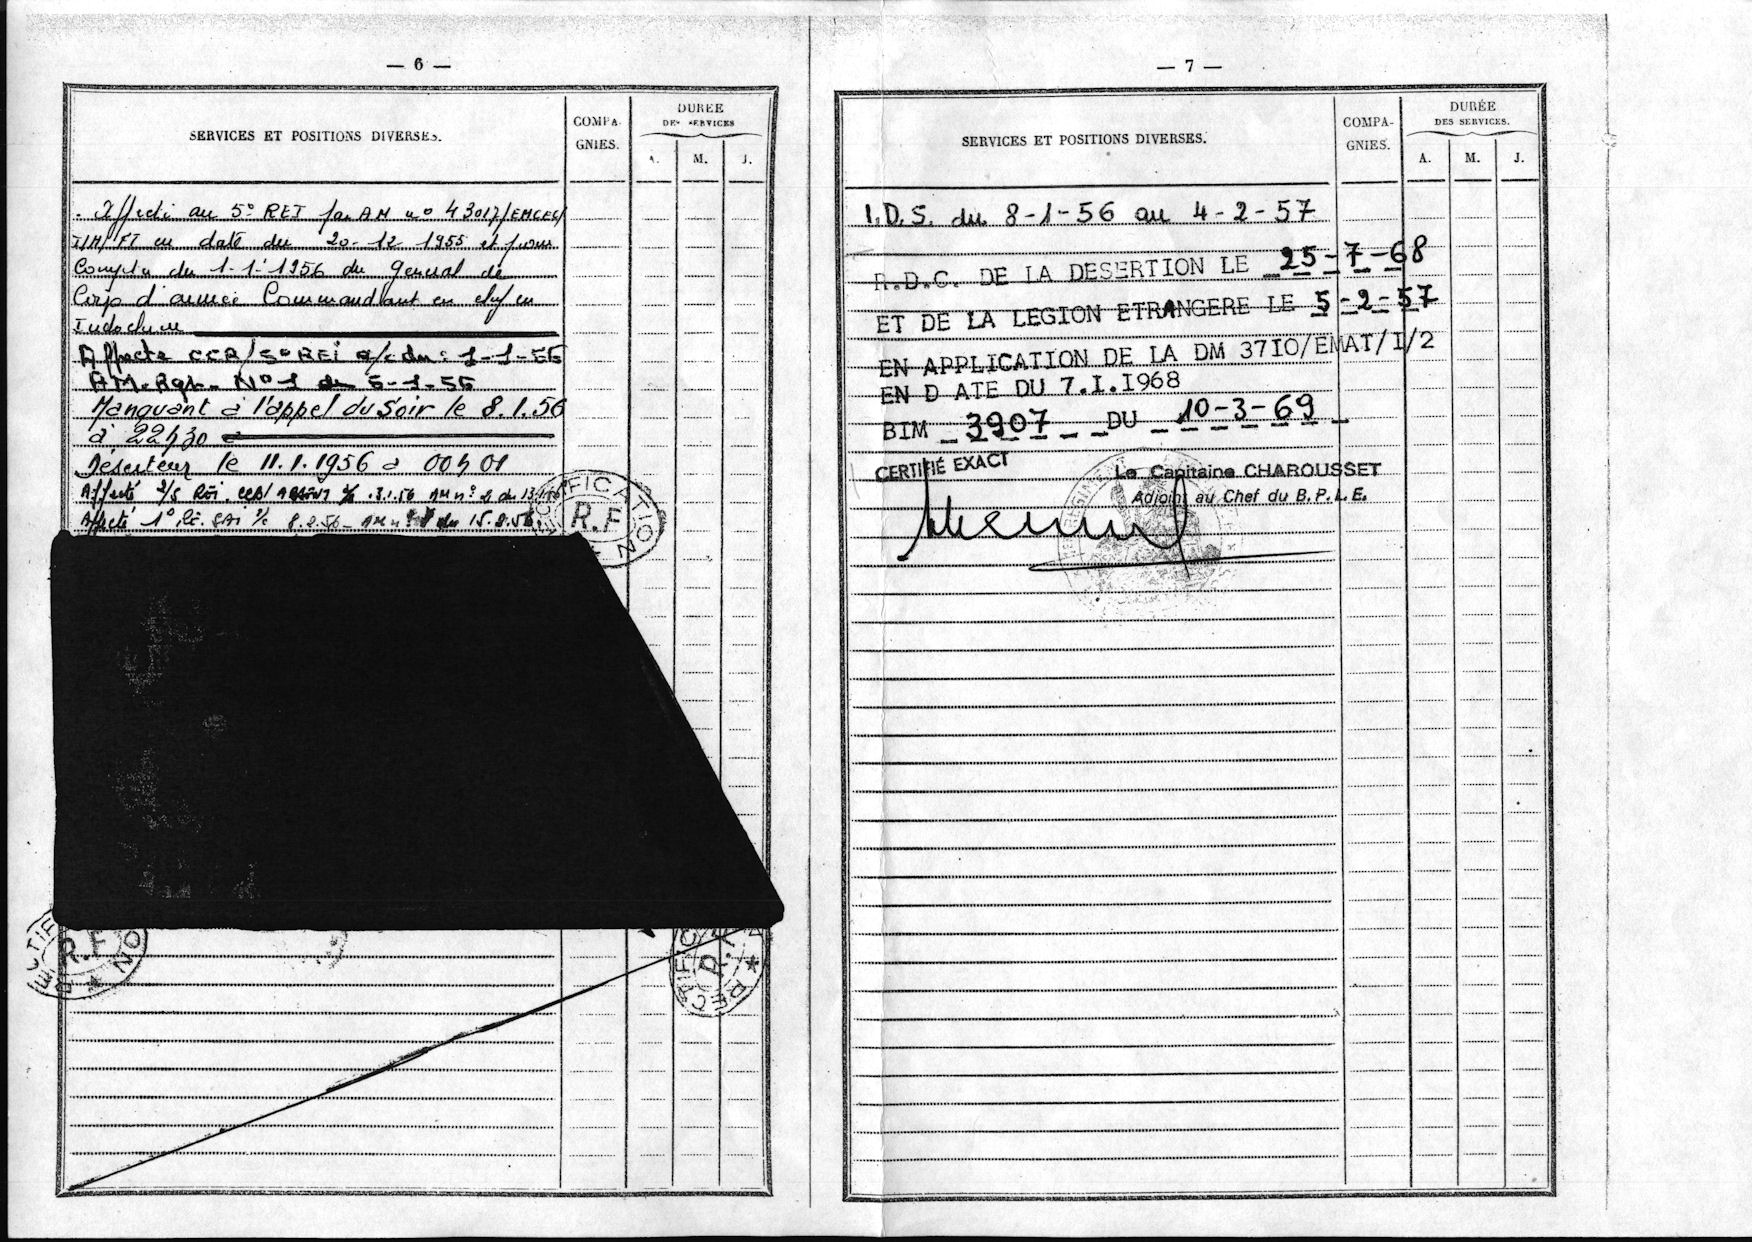 — 6 —
SERVICES ET POSITIONS DIVERSES.
COMPA-
GNIES.
DUREE
DES SERVICES
A. M. J.
. Affecté au 5° REI par AM n° 43017/EMCEC/
I/H/ET en date du 20-12 1955 et pour
Compter du 1-1-1956 du General de
Corp d'armée Commandant en chef en
Indochine
Affecte CCR/5° REI a/c du : 1-1-56
AM. Rgt. N° 1 du 5-1-56
Manquant à l'appel du Soir le 8.1.56
à 22h30
Déserteur le 11.1.1956 à 00h01
Affecté 1° 8.2.56
RECTIFICATION
R.F
RECTIFICATION
R.F
RECTIFICATION
R.F
— 7 —
SERVICES ET POSITIONS DIVERSES.
COMPA-
GNIES.
DURÉE
DES SERVICES.
A. M. J.
I.D.S. du 8-1-56 au 4-2-57
R.D.C. DE LA DESERTION LE 25-7-68
ET DE LA LEGION ETRANGERE LE 5-2-57
EN APPLICATION DE LA DM 37IO/EMAT/I/2
EN D ATE DU 7.I.I968
BIM 3907 DU 10-3-69
CERTIFIÉ EXACT
Le Capitaine CHAROUSSET
Adjoint au Chef du B.P.L.E.